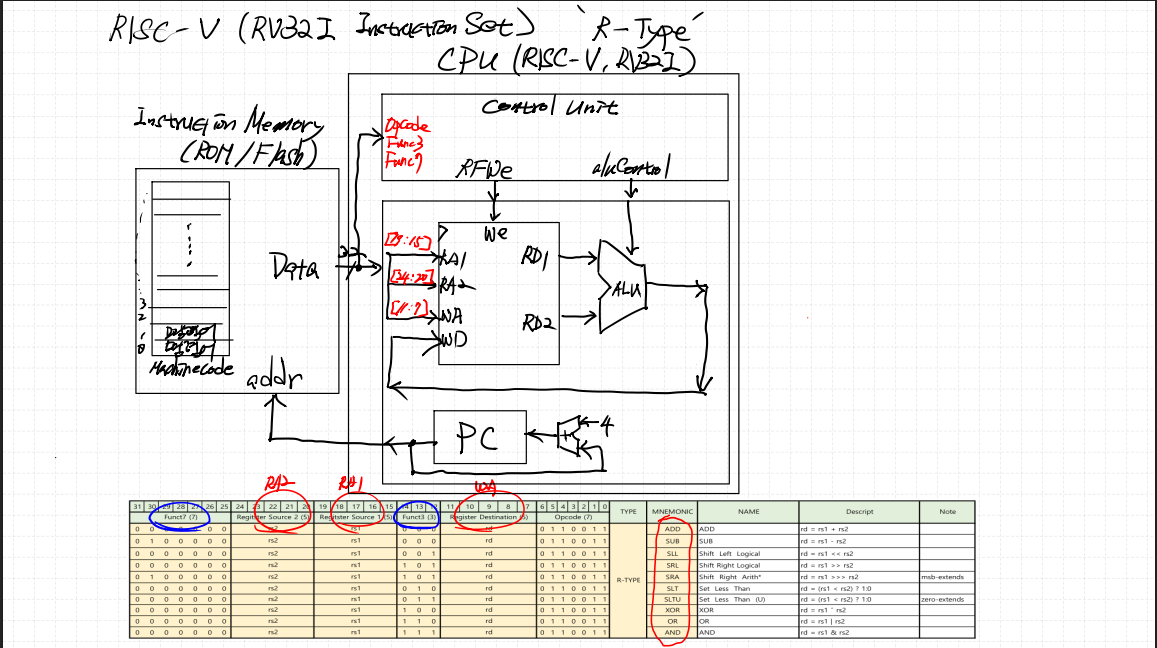 RISC-V (RV32I Instruction Set) 'R-Type'
CPU (RISC-V, RV32I)
Control Unit
Opcode
Func3
Func7
RFWe
aluControl
Instruction Memory
(ROM/Flash)
Data
32
3
2
1
0
Machinecode
addr
[19:15]
[24:20]
[11:7]
We
RA1
RA2
WA
WD
RD1
RD2
ALU
PC
+
4
RA2 RA1 WA
31 30 29 28 27 26 25 24 23 22 21 20 19 18 17 16 15 14 13 12 11 10 9 8 7 6 5 4 3 2 1 0 TYPE MNEMONIC NAME Descript Note
Funct7 (7) Register Source 2 (5) Register Source 1 (5) Funct3 (3) Register Destination (5) Opcode (7)
0 0 0 0 0 0 0 rs2 rs1 0 0 0 rd 0 1 1 0 0 1 1 ADD ADD rd = rs1 + rs2
0 1 0 0 0 0 0 rs2 rs1 0 0 0 rd 0 1 1 0 0 1 1 SUB SUB rd = rs1 - rs2
0 0 0 0 0 0 0 rs2 rs1 0 0 1 rd 0 1 1 0 0 1 1 SLL Shift Left Logical rd = rs1 << rs2
0 0 0 0 0 0 0 rs2 rs1 1 0 1 rd 0 1 1 0 0 1 1 SRL Shift Right Logical rd = rs1 >> rs2
0 1 0 0 0 0 0 rs2 rs1 1 0 1 rd 0 1 1 0 0 1 1 R-TYPE SRA Shift Right Arith* rd = rs1 >>> rs2 msb-extends
0 0 0 0 0 0 0 rs2 rs1 0 1 0 rd 0 1 1 0 0 1 1 SLT Set Less Than rd = (rs1 < rs2) ? 1:0
0 0 0 0 0 0 0 rs2 rs1 0 1 1 rd 0 1 1 0 0 1 1 SLTU Set Less Than (U) rd = (rs1 < rs2) ? 1:0 zero-extends
0 0 0 0 0 0 0 rs2 rs1 1 0 0 rd 0 1 1 0 0 1 1 XOR XOR rd = rs1 ^ rs2
0 0 0 0 0 0 0 rs2 rs1 1 1 0 rd 0 1 1 0 0 1 1 OR OR rd = rs1 | rs2
0 0 0 0 0 0 0 rs2 rs1 1 1 1 rd 0 1 1 0 0 1 1 AND AND rd = rs1 & rs2